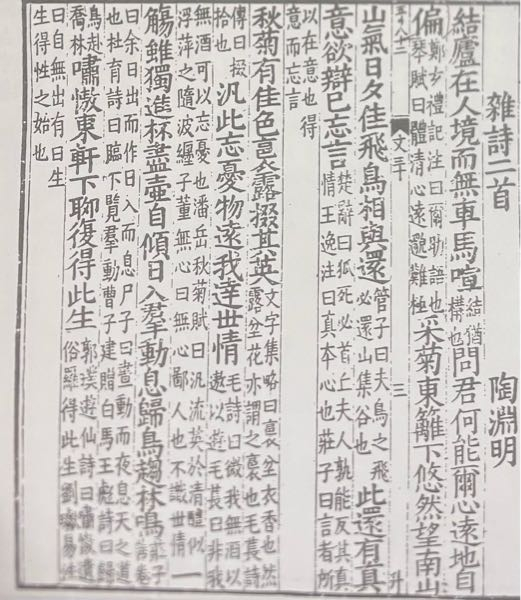 雜詩二首　陶淵明
結廬在人境而無車馬喧結猶構也問君何能爾心遠地自
偏鄭玄禮記注曰爾助語也琴賦曰體清心遠邈難極采菊東籬下悠然望南山
文三十　三　升
山氣日夕佳飛鳥相與還管子曰夫鳥之飛必還山集谷也此還有真
意欲辯已忘言楚辭曰狐死必首丘夫人孰能反其真情王逸注曰真本心也莊子曰言者所
以在意也得意而忘言
秋菊有佳色裛露掇其英文字集略曰裛坌衣香也然露坌花亦謂之裛也毛萇詩
傳曰掇拾也汎此忘憂物遠我達世情毛詩曰微我無酒以遨以遊毛萇曰非我
無酒可以忘憂也潘岳秋菊賦曰汎流英於清醴似浮萍之隨波纏子董無心曰無心鄙人也不識世情一
觴雖獨進杯盡壺自傾日入羣動息歸鳥趨林鳴莊子善卷
曰余日出而作日入而息尸子曰晝動而夜息天之道也杜育詩曰臨下覽羣動曹子建贈白馬王彪詩曰歸
鳥赴喬林嘯傲東軒下聊復得此生郭璞遊仙詩曰嘯傲遺俗羅得此生劉瓛易注
曰自無出有曰生生得性之始也